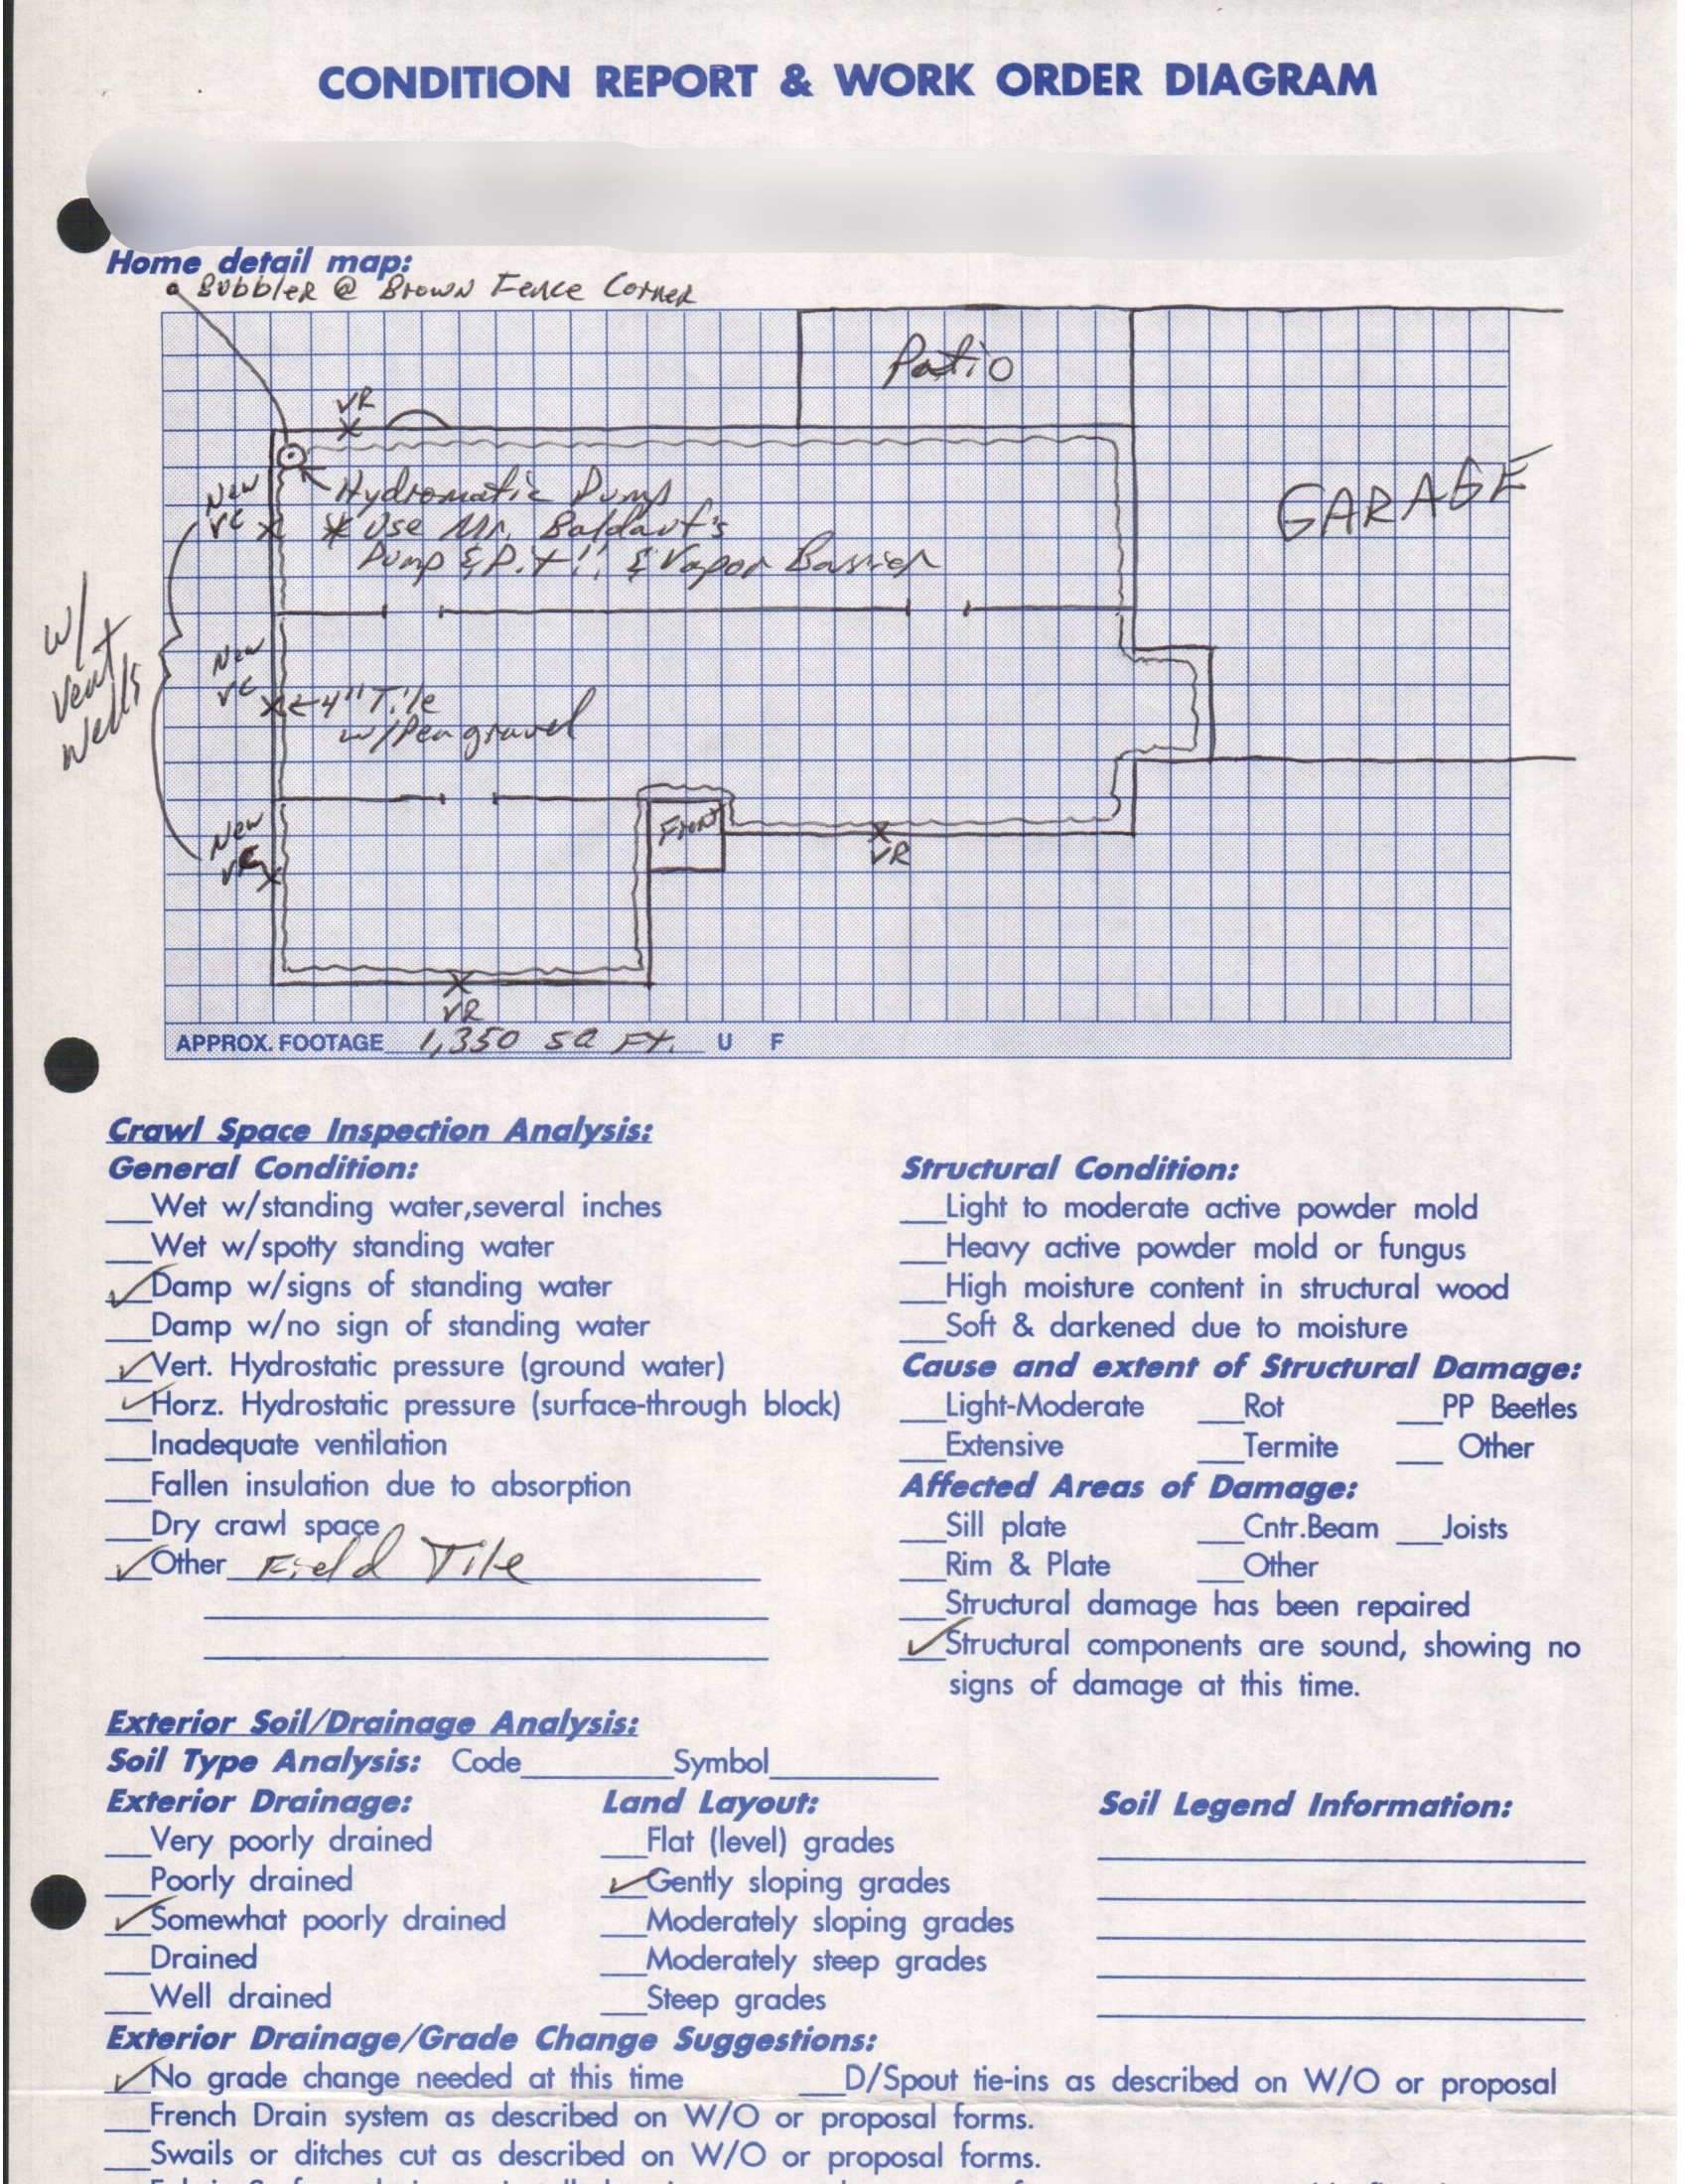 CONDITION REPORT & WORK ORDER DIAGRAM
Home detail map:
Bubbler @ Brown Fence Corner
Patio
VR
GARAGE
New
VC
Hydromatic Pump
* Use Mr. Baldauf's
Pump & Pit!! & Vapor Barrier
w/
Vent
Wells
New
VC
←4" Tile
w/Pea gravel
New
VC
Front
VR
VR
APPROX. FOOTAGE 1,350 SQ FT. U F
Crawl Space Inspection Analysis:
General Condition:
Wet w/standing water,several inches
Wet w/spotty standing water
✓ Damp w/signs of standing water
Damp w/no sign of standing water
✓ Vert. Hydrostatic pressure (ground water)
✓ Horz. Hydrostatic pressure (surface-through block)
Inadequate ventilation
Fallen insulation due to absorption
Dry crawl space
✓ Other Field Tile
Structural Condition:
Light to moderate active powder mold
Heavy active powder mold or fungus
High moisture content in structural wood
Soft & darkened due to moisture
Cause and extent of Structural Damage:
Light-Moderate Rot PP Beetles
Extensive Termite Other
Affected Areas of Damage:
Sill plate Cntr.Beam Joists
Rim & Plate Other
Structural damage has been repaired
✓ Structural components are sound, showing no
signs of damage at this time.
Exterior Soil/Drainage Analysis:
Soil Type Analysis: Code Symbol
Exterior Drainage:
Very poorly drained
Poorly drained
✓ Somewhat poorly drained
Drained
Well drained
Land Layout:
Flat (level) grades
✓ Gently sloping grades
Moderately sloping grades
Moderately steep grades
Steep grades
Soil Legend Information:
Exterior Drainage/Grade Change Suggestions:
✓ No grade change needed at this time D/Spout tie-ins as described on W/O or proposal
French Drain system as described on W/O or proposal forms.
Swails or ditches cut as described on W/O or proposal forms.